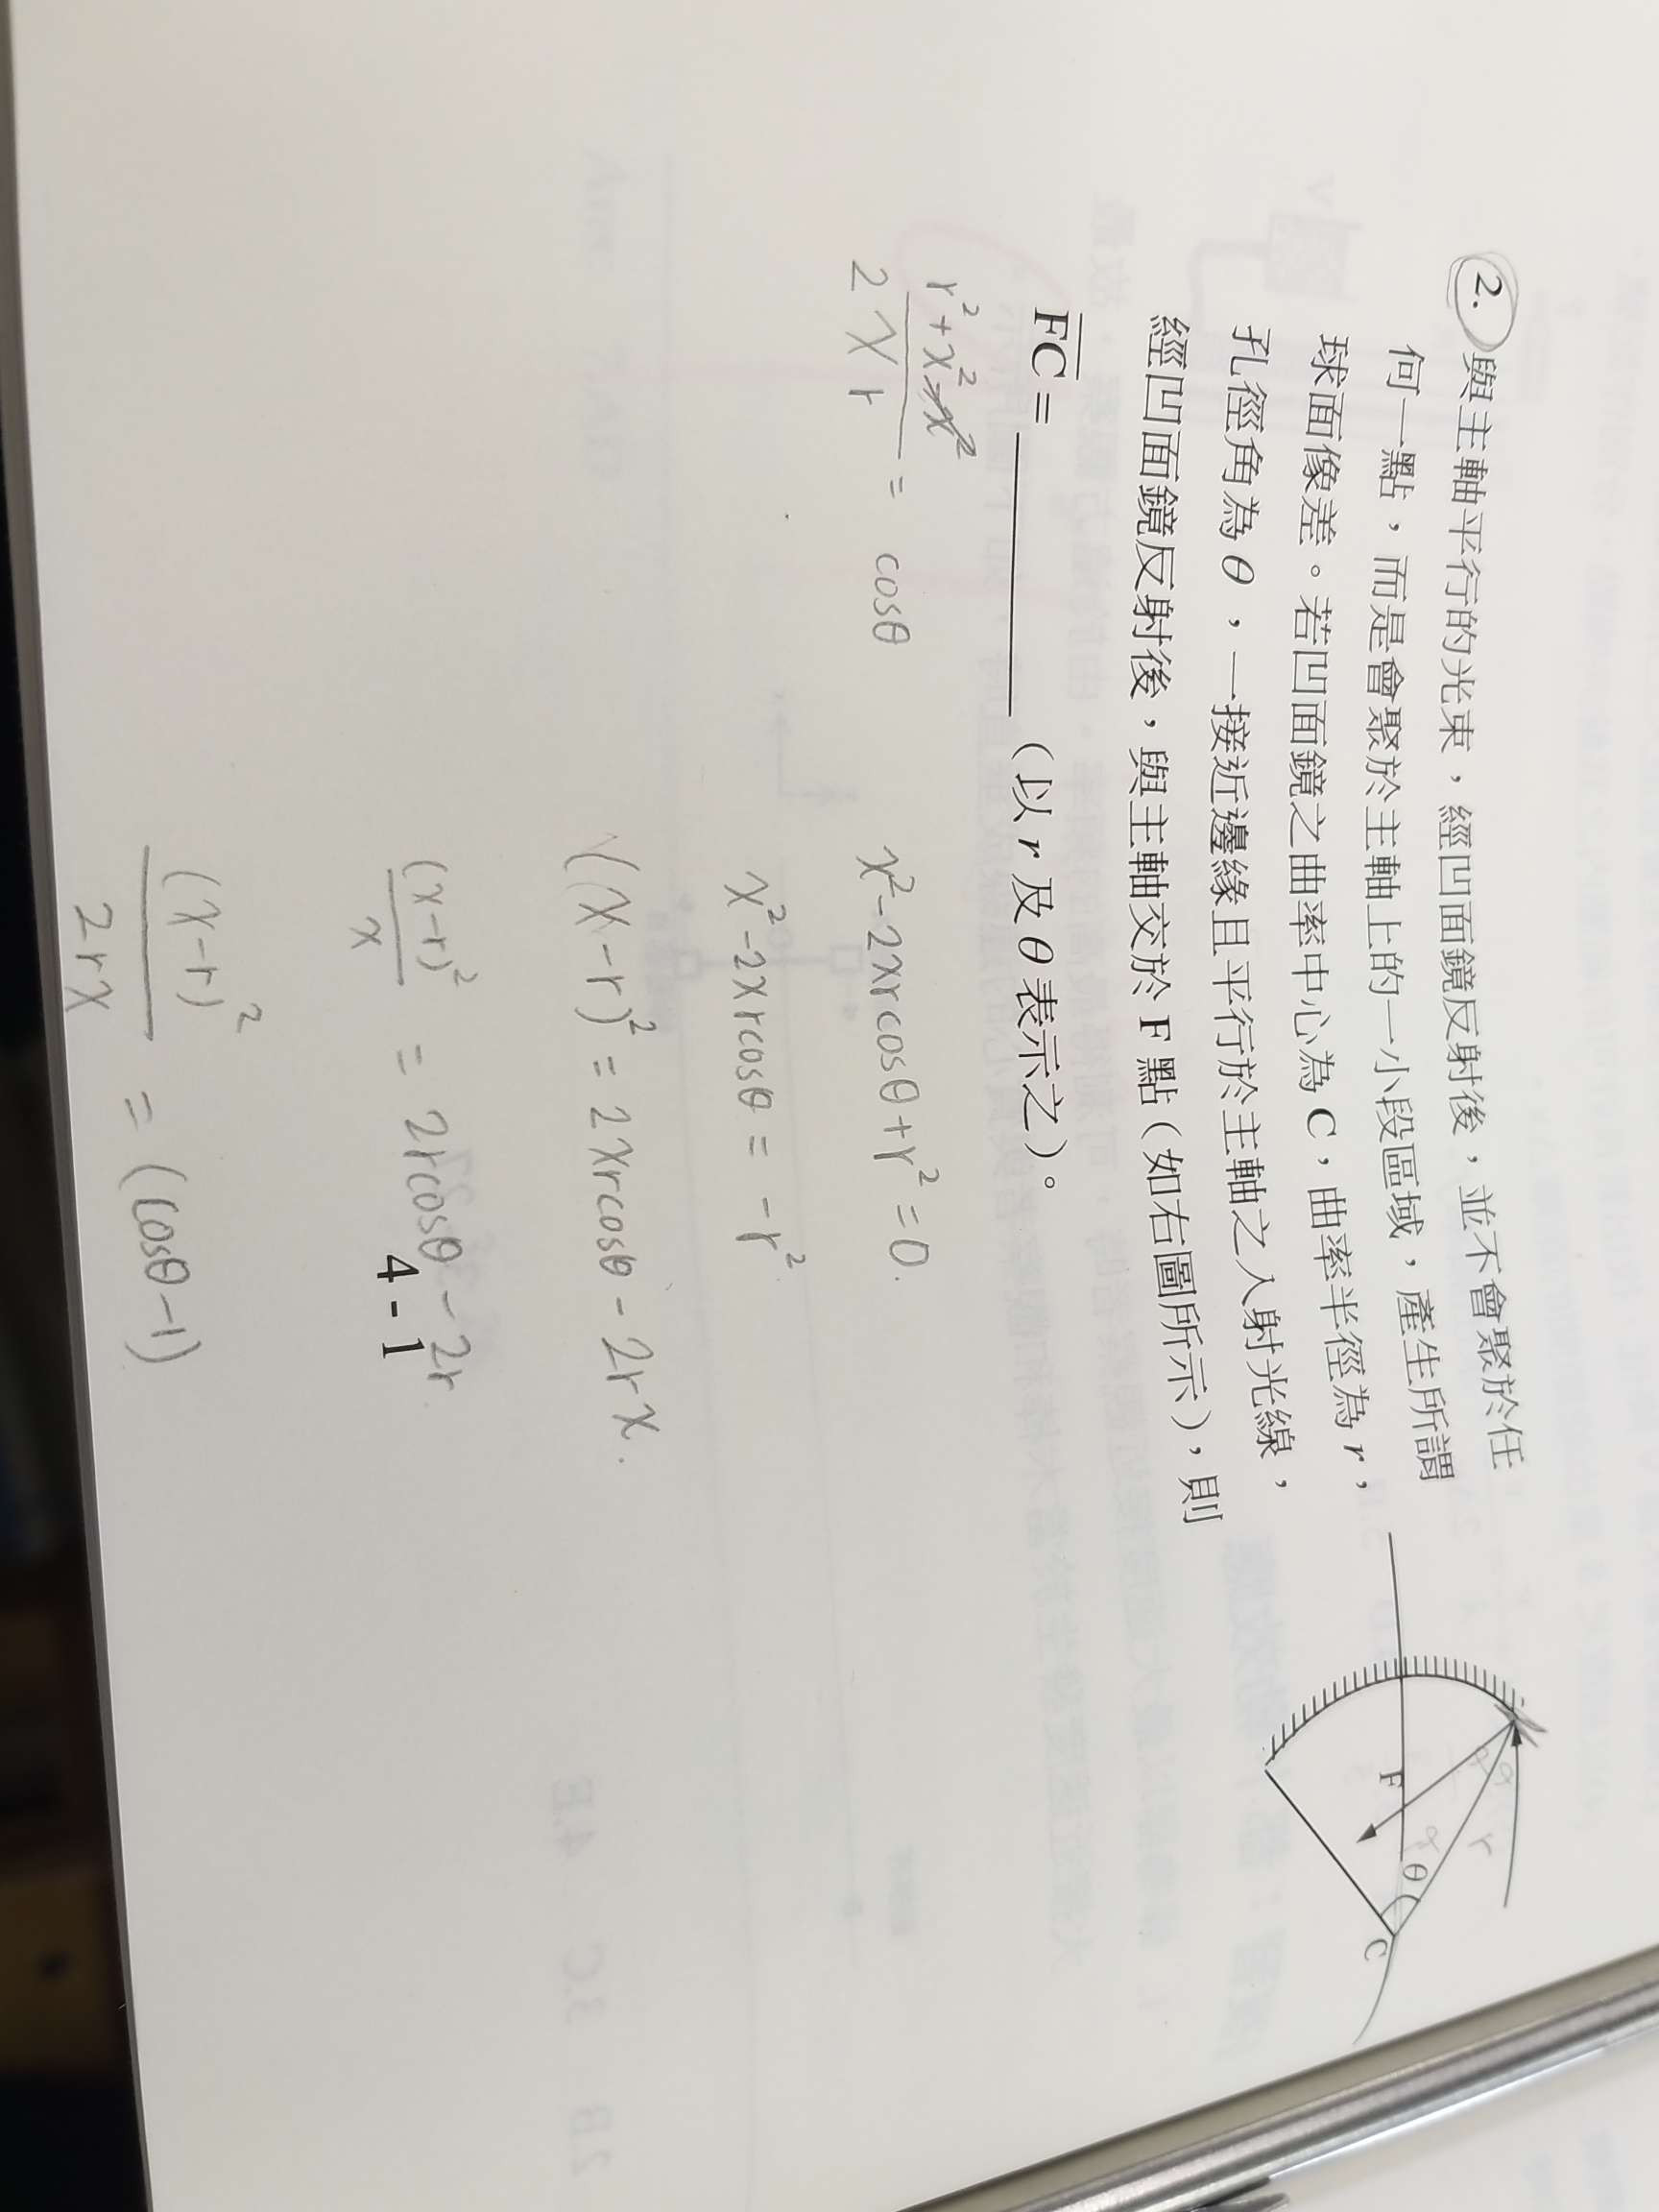 2. 與主軸平行的光束，經凹面鏡反射後，並不會聚於任
何一點，而是會聚於主軸上的一小段區域，產生所謂
球面像差。若凹面鏡之曲率中心為 C，曲率半徑為 r，
孔徑角為 θ，一接近邊緣且平行於主軸之入射光線，
經凹面鏡反射後，與主軸交於 F 點（如右圖所示），則
FC = ________ （以 r 及 θ 表示之）。
α
α
r
α
F
θ
C
r²+x²-x²
2xr
= cosθ
x²-2xrcosθ+r²=0.
x²-2xrcosθ = -r²
(x-r)² = 2xrcosθ - 2rx.
(x-r)²
x
= 2rcosθ - 2r.
4 - 1
(x-r)²
2rx
= (cosθ-1)